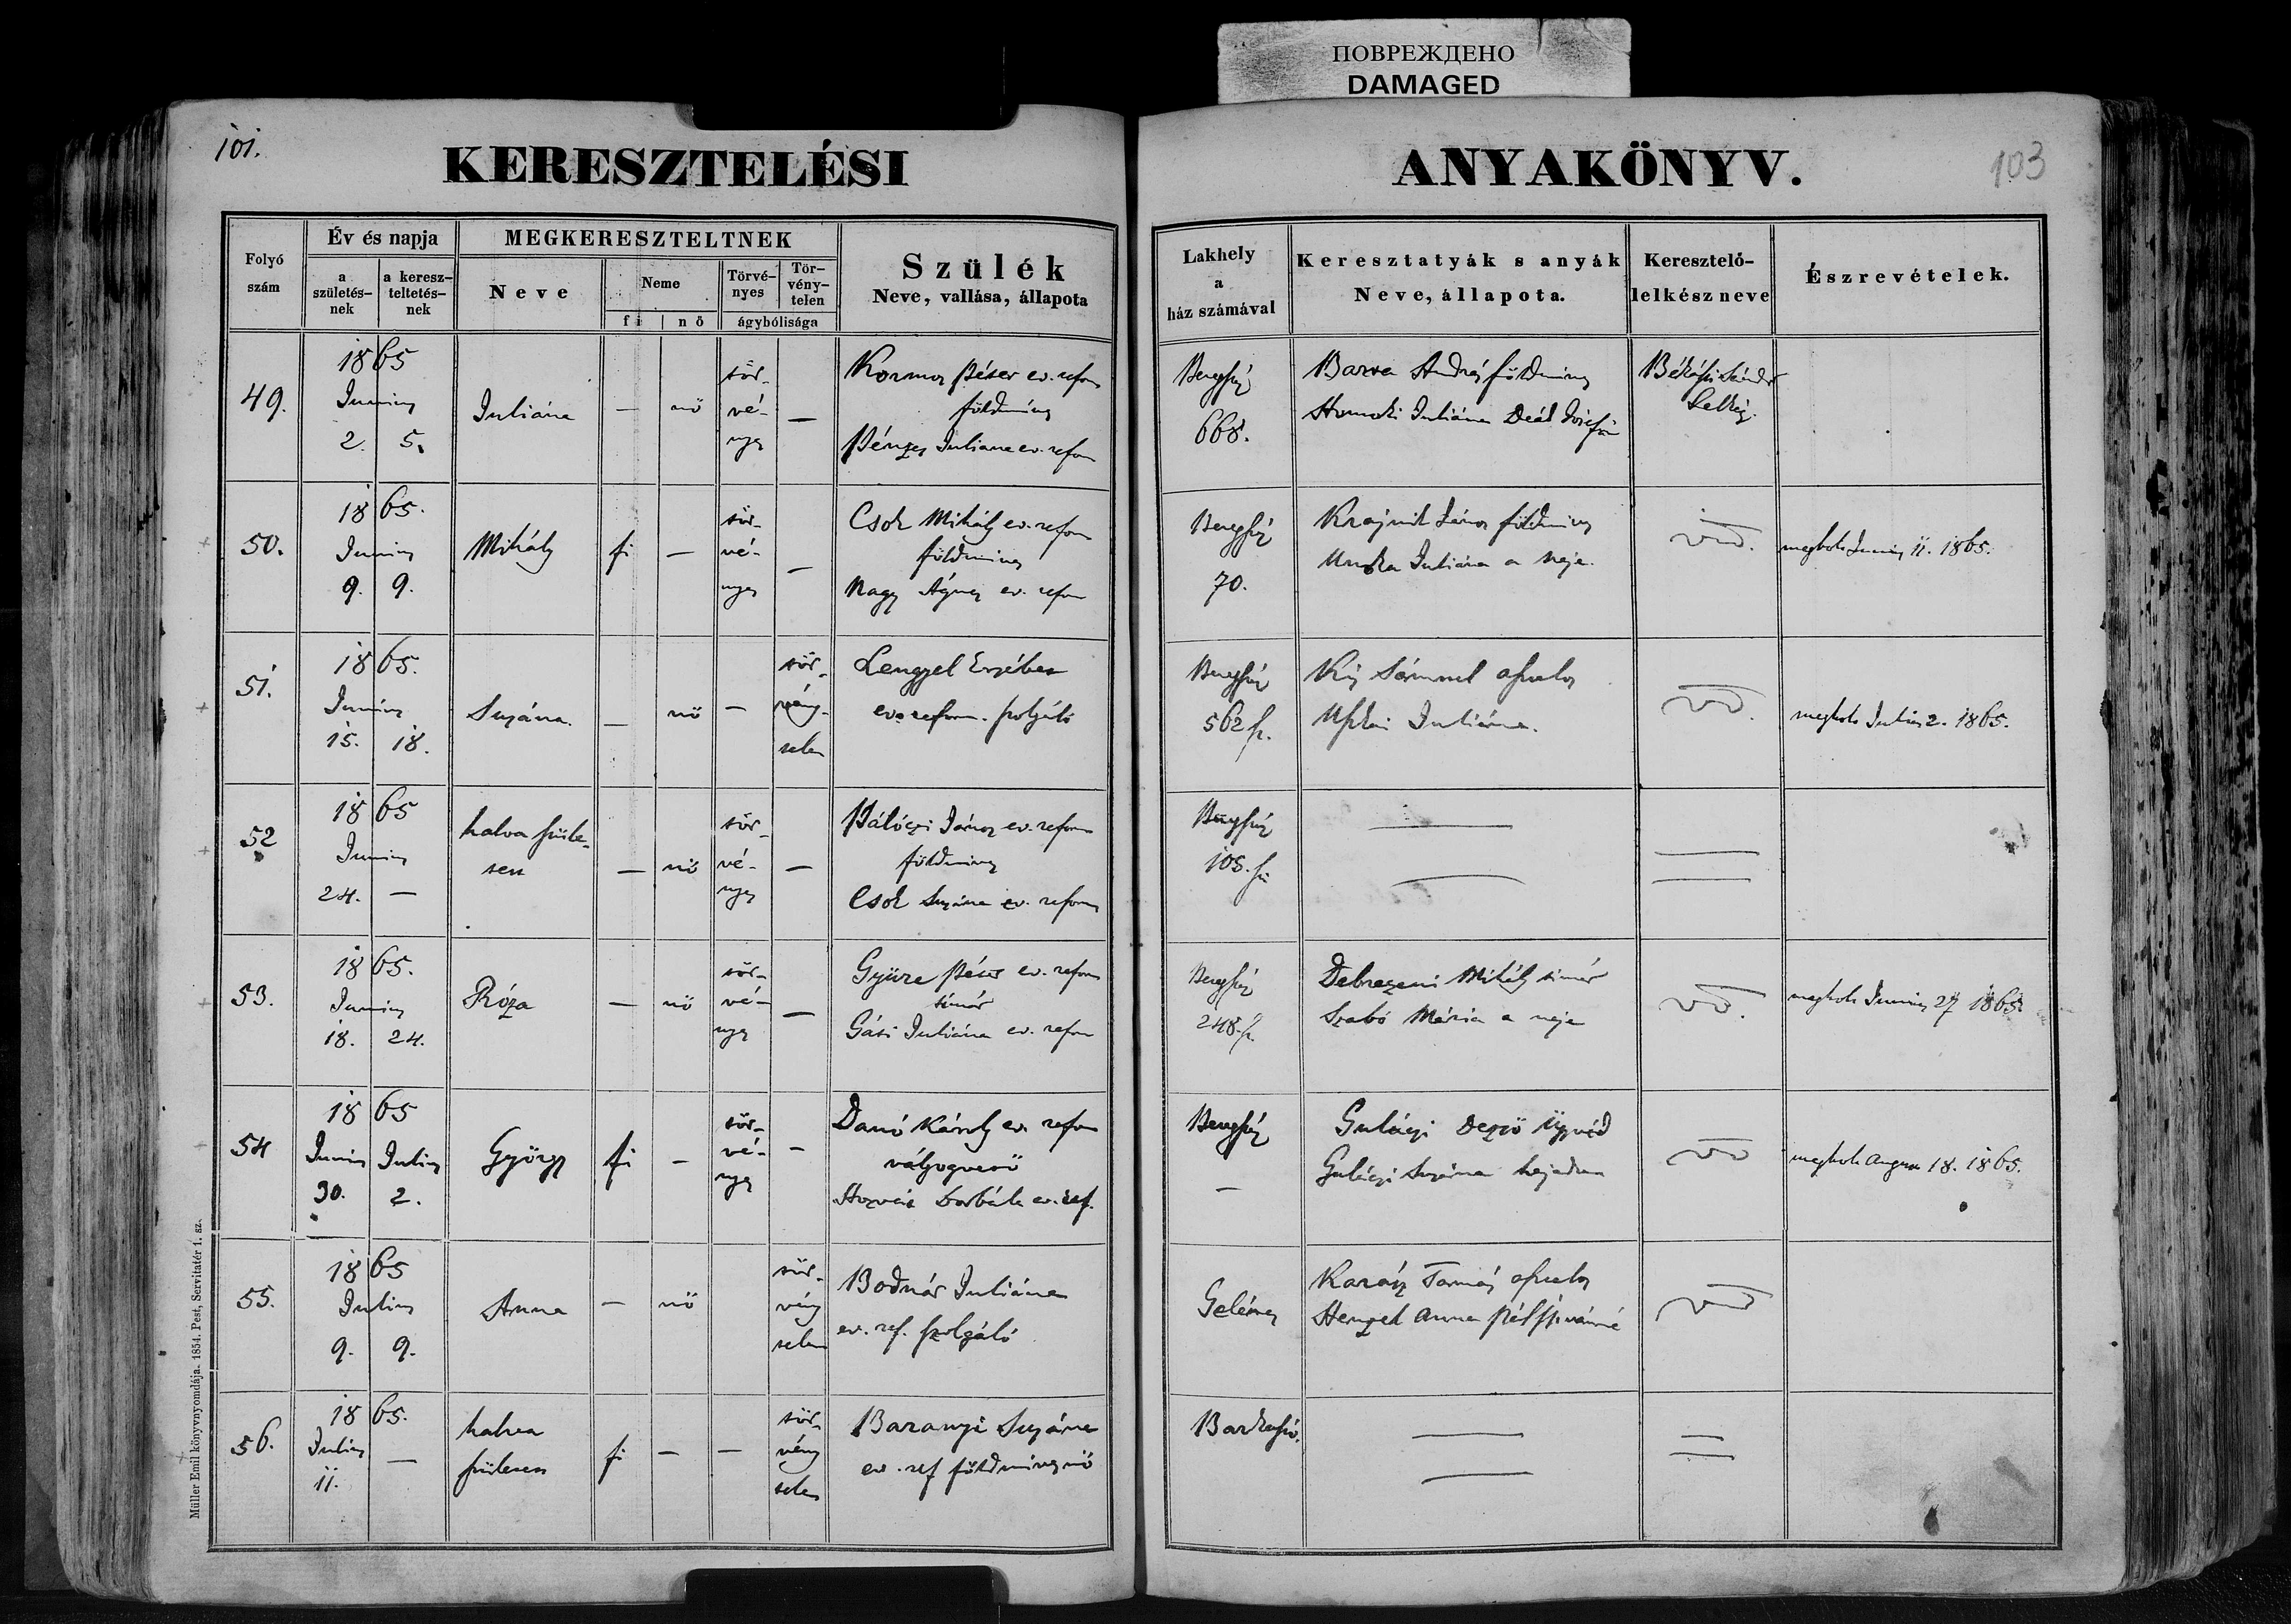 ПОВРЕЖДЕНО
DAMAGED
101.
KERESZTELÉSI
ANYAKÖNYV.
103
Folyó
szám
Év és napja
a
születés-
nek
a keresz-
teltetés-
nek
MEGKERESZTELTNEK
Neve
Neme
fi
nő
Törvé-
nyes
Tör-
vény-
telen
ágybólisága
Szülék
Neve, vallása, állapota
Lakhely
a
ház számával
Keresztatyák s anyák
Neve, állapota.
Keresztelő-
lelkész neve
Észrevételek.
49.
1865
Junius
2. 5.
Juliána
— nő
tör-
vé-
nyes
—
Kormos Péter ev. refor
földmives
Pénzes Juliana ev. refor
Beregszáz
668.
Barta András földmives
Homoki Juliána Deák Józsefné
Békássi Sándor
Lelkész.
50.
1865.
Junius
9. 9.
Mihály
fi —
tör-
vé-
nyes
—
Csok Mihály ev. refor
földmives
Nagy Ágnes ev. refor
Beregszáz
70.
Krajnik János földmives
Juliána a neje.
megholt Junius 11. 1865.
51.
1865.
Junius
15. 18.
Suzána.
— nő —
tör-
vény-
telen
Lengyel Erzsébet
ev. reform. szolgáló
Beregszáz
562 sz.
Kis Sámuel asztalos
Juliána.
megholt Julius 2. 1865.
52
1865
Junius
24. —
halva szüle-
tett
— nő
tör-
vé-
nyes
—
Pálóczi János ev. reform
földmives
Csok Suzána ev. reform
Beregszáz
105. sz.
53.
1865.
Junius
18. 24.
Róza
— nő
tör-
vé-
nyes
—
Gyüre Péter ev. reform
timár
Gáti Juliána ev. refor
Beregszáz
248. sz.
Debreczeni Mihály timár
Szabó Mária a neje
megholt Junius 27 1865.
54
1865
Junius Julius
30. 2.
György
fi —
tör-
vé-
nyes
—
Danó Károly ev. refor
vályogvető
Horvát Borbála ev. ref.
Beregszáz
—
Gulácsi Dezső Ügyvéd
Gulácsi Suzána hajadon
megholt August 18. 1865.
55.
1865
Julius
9. 9.
Anna
— nő
tör-
vény
telen
Bodnár Juliána
ev. ref. szolgáló
Gelénes
Karász Tamás asztalos
Henzel Anna
56.
1865.
Julius
11. —
halva
született
fi — —
tör-
vény
telen
Baranyi Suzána
ev. ref földmivesnő
Barkaszó.
Müller Emil könyvnyomdája. 1854. Pest, Servitatér 1. sz.